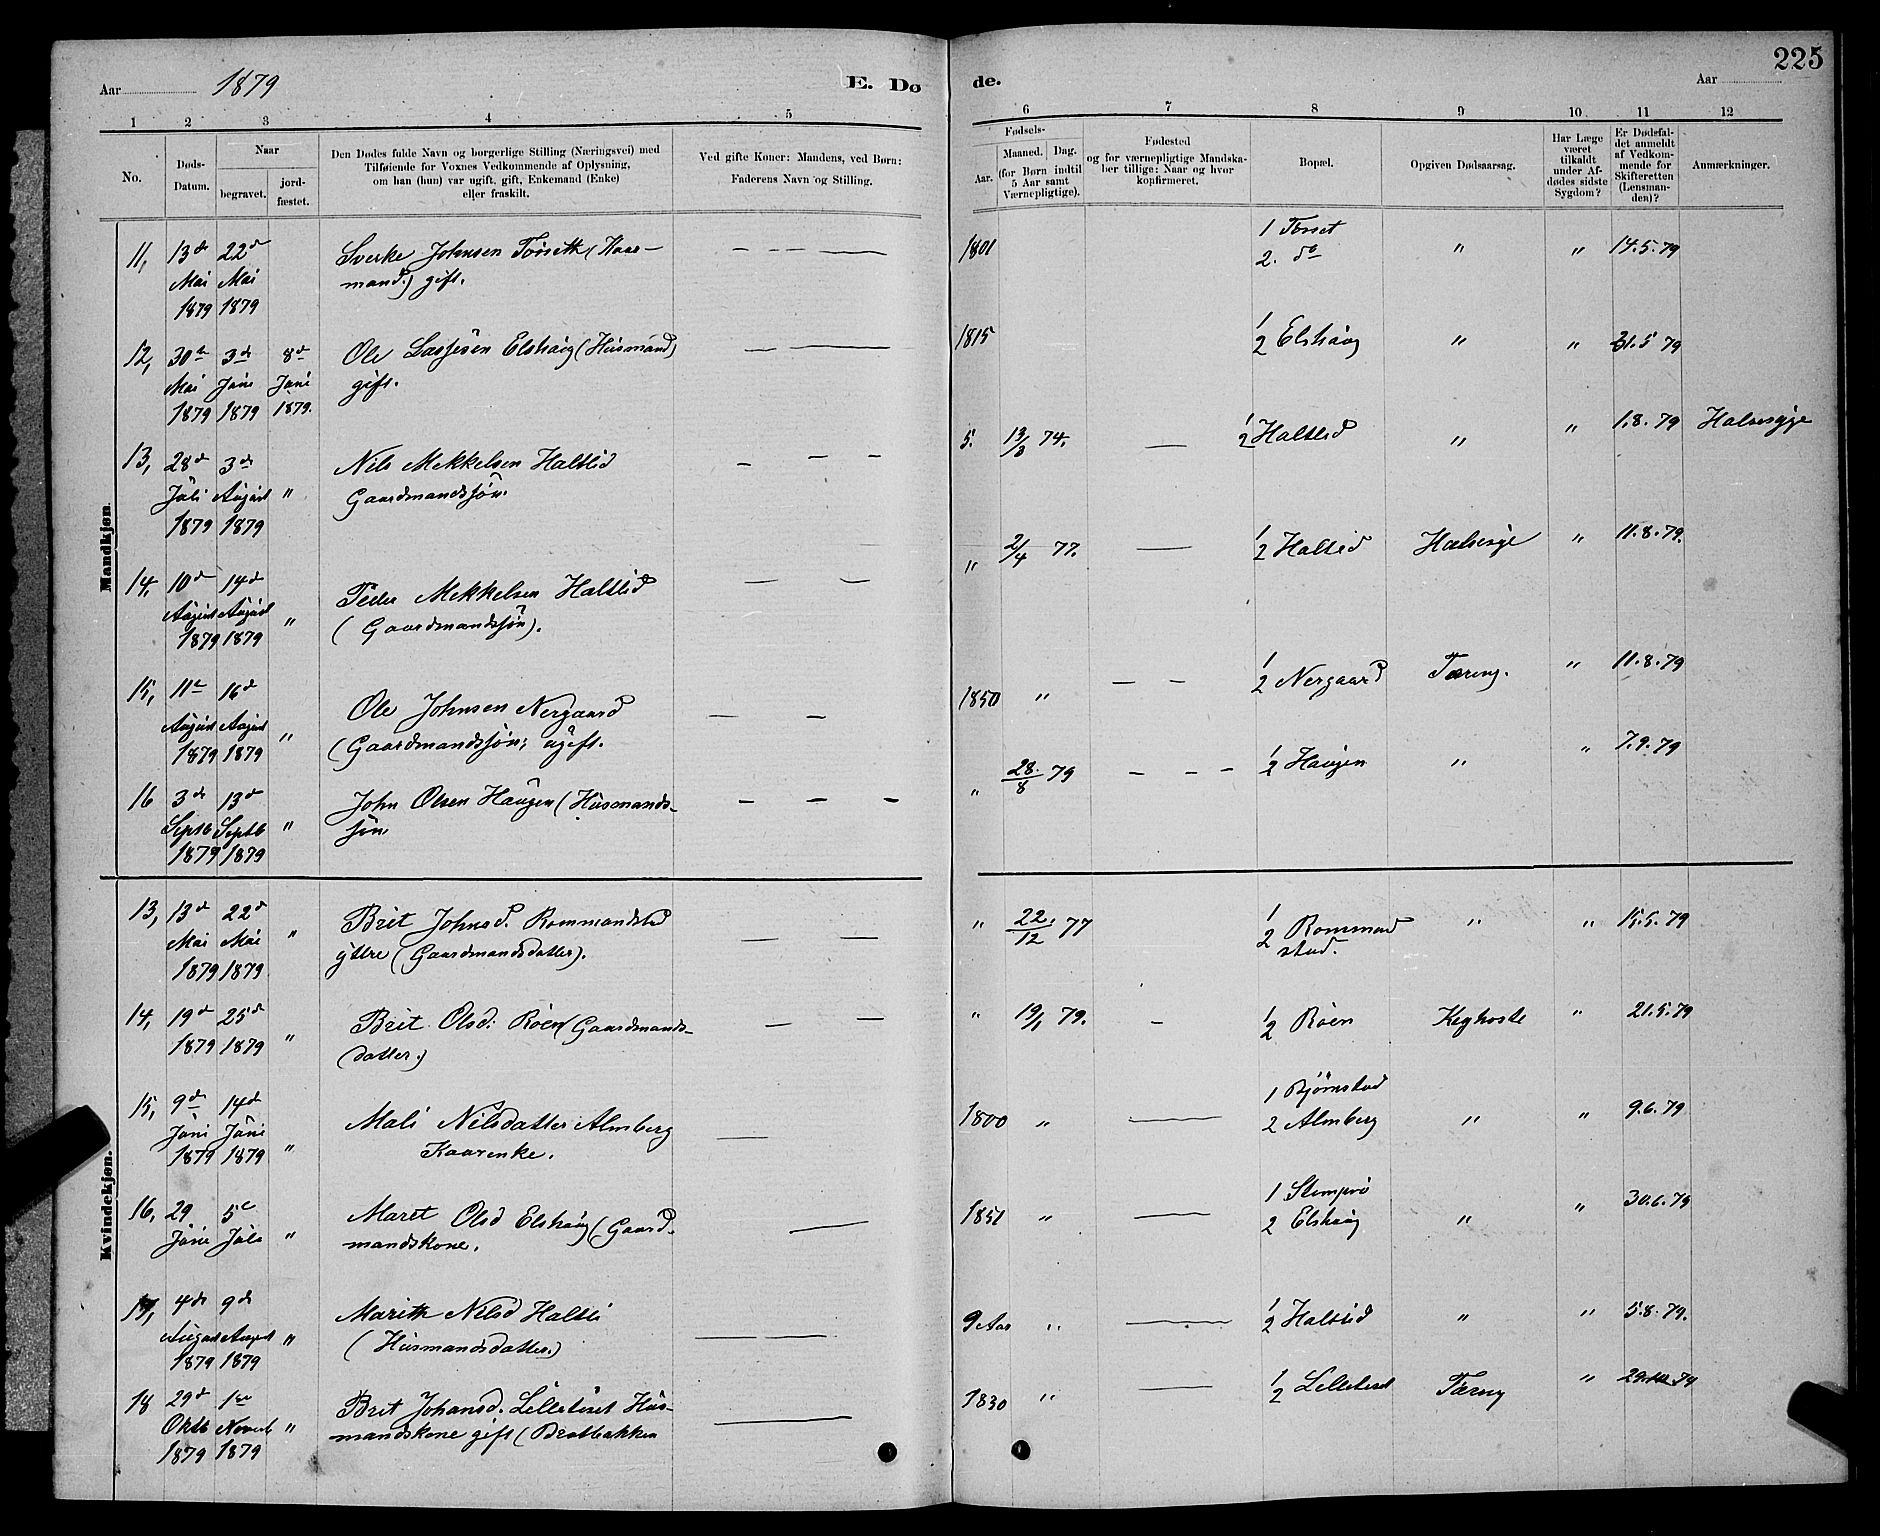 225
Aar 1879 E. Dø de. Aar
1 2 3 4 5 6 7 8 9 10 11 12
No.
Døds-
Datum.
Naar
begravet.
jord-
fæstet.
Den Dødes fulde Navn og borgerlige Stilling (Næringsvei) med
Tilføiende for Voxnes Vedkommende af Oplysning,
om han (hun) var ugift, gift, Enkemand (Enke)
eller fraskilt.
Ved gifte Koner: Mandens, ved Børn:
Faderens Navn og Stilling.
Fødsels-
Aar.
Maaned. Dag.
(for Børn indtil
5 Aar samt
Værnepligtige).
Fødested
og for værnepligtige Mandska-
ber tillige: Naar og hvor
konfirmeret.
Bopæl.
Opgiven Dødsaarsag.
Har Læge
været
tilkaldt
under Af-
dødes sidste
Sygdom?
Er Dødsfal-
det anmeldt
af Vedkom-
mende for
Skifteretten
(Lensman-
den)?
Anmærkninger.
Mandkjøn.
11, 13de 22de Sverke Johnsen Torseth (Kaar- — — — 1801 1 Torset " " 14.5.79
Mai Mai mand.) gift. 2. do
1879 1879
12, 30te 3de 8de Ole Lassesen Elshaug (Husmand) — — 1815 1/2 Elshaug " " 31.5 79
Mai Juni Juni gift.
1879 1879 1879.
13, 28de 3de Nils Mekkelsen Haltlid — — — 5. 13/3 74. — 1/2 Haltlid " " 1.8.79 Halsesyge
Juli August " Gaardmandssøn.
1879 1879
14, 10de 14de Peder Mekkelsen Haltlid — — " 2/4 77. — 1/2 Haltlid Halsesyge " 11.8.79.
August August " (Gaardmandssøn).
1879 1879
15, 11te 16de Ole Johnsen Nergaard — — 1850 " — — 1/2 Nergaard Tæring. " 11.8.79
August August " (Gaardmandssøn; ugift.
1879 1879
16 3de 13de John Olsen Haugen (Husmands- — — — " 28./8 79 — — — 1/2 Haugen " " 7.9.79
Septb Septb " søn.
1879 1879
Kvindekjøn.
13, 13de 22de Brit Johnsd. Rommundstad — — " 22./12 77 1/2 Rommund " " 15.5.79
Mai Mai " yttre (Gaardmandsdatter). stad.
1879 1879
14, 19de 25de Brit Olsd: Röen (Gaardmands- — — " 19/1 79. — 1/2 Röen Kighoste " 21.5.79
1879 1879 " datter.)
15, 9de 14de Mali Nilsdatter Almberg — 1800 " — 1 Bjørnstad " " 9.6.79
Juni Juni Kaarenke. 2 Almberg
1879 1879 "
16, 29 5te Maret Olsd Elshaug (Gaard- — 1851 " — 1 " " 30.6.79
Juni Juli " mandskone. 2 Elshaug
17, 4de 9de Marith Nilsd Haltli — — 9 Aar " — 1/2 Haltlid " " 5.8.79.
August August " (Husmandsdatter.)
1879 1879
18 29de 1ste Brit Johansd. Lilletiset Hus- — 1830 " — 1/2 Tæring " 29.10.79
Oktb Novemb " mandskone gift (Bratbakken
1879 1879